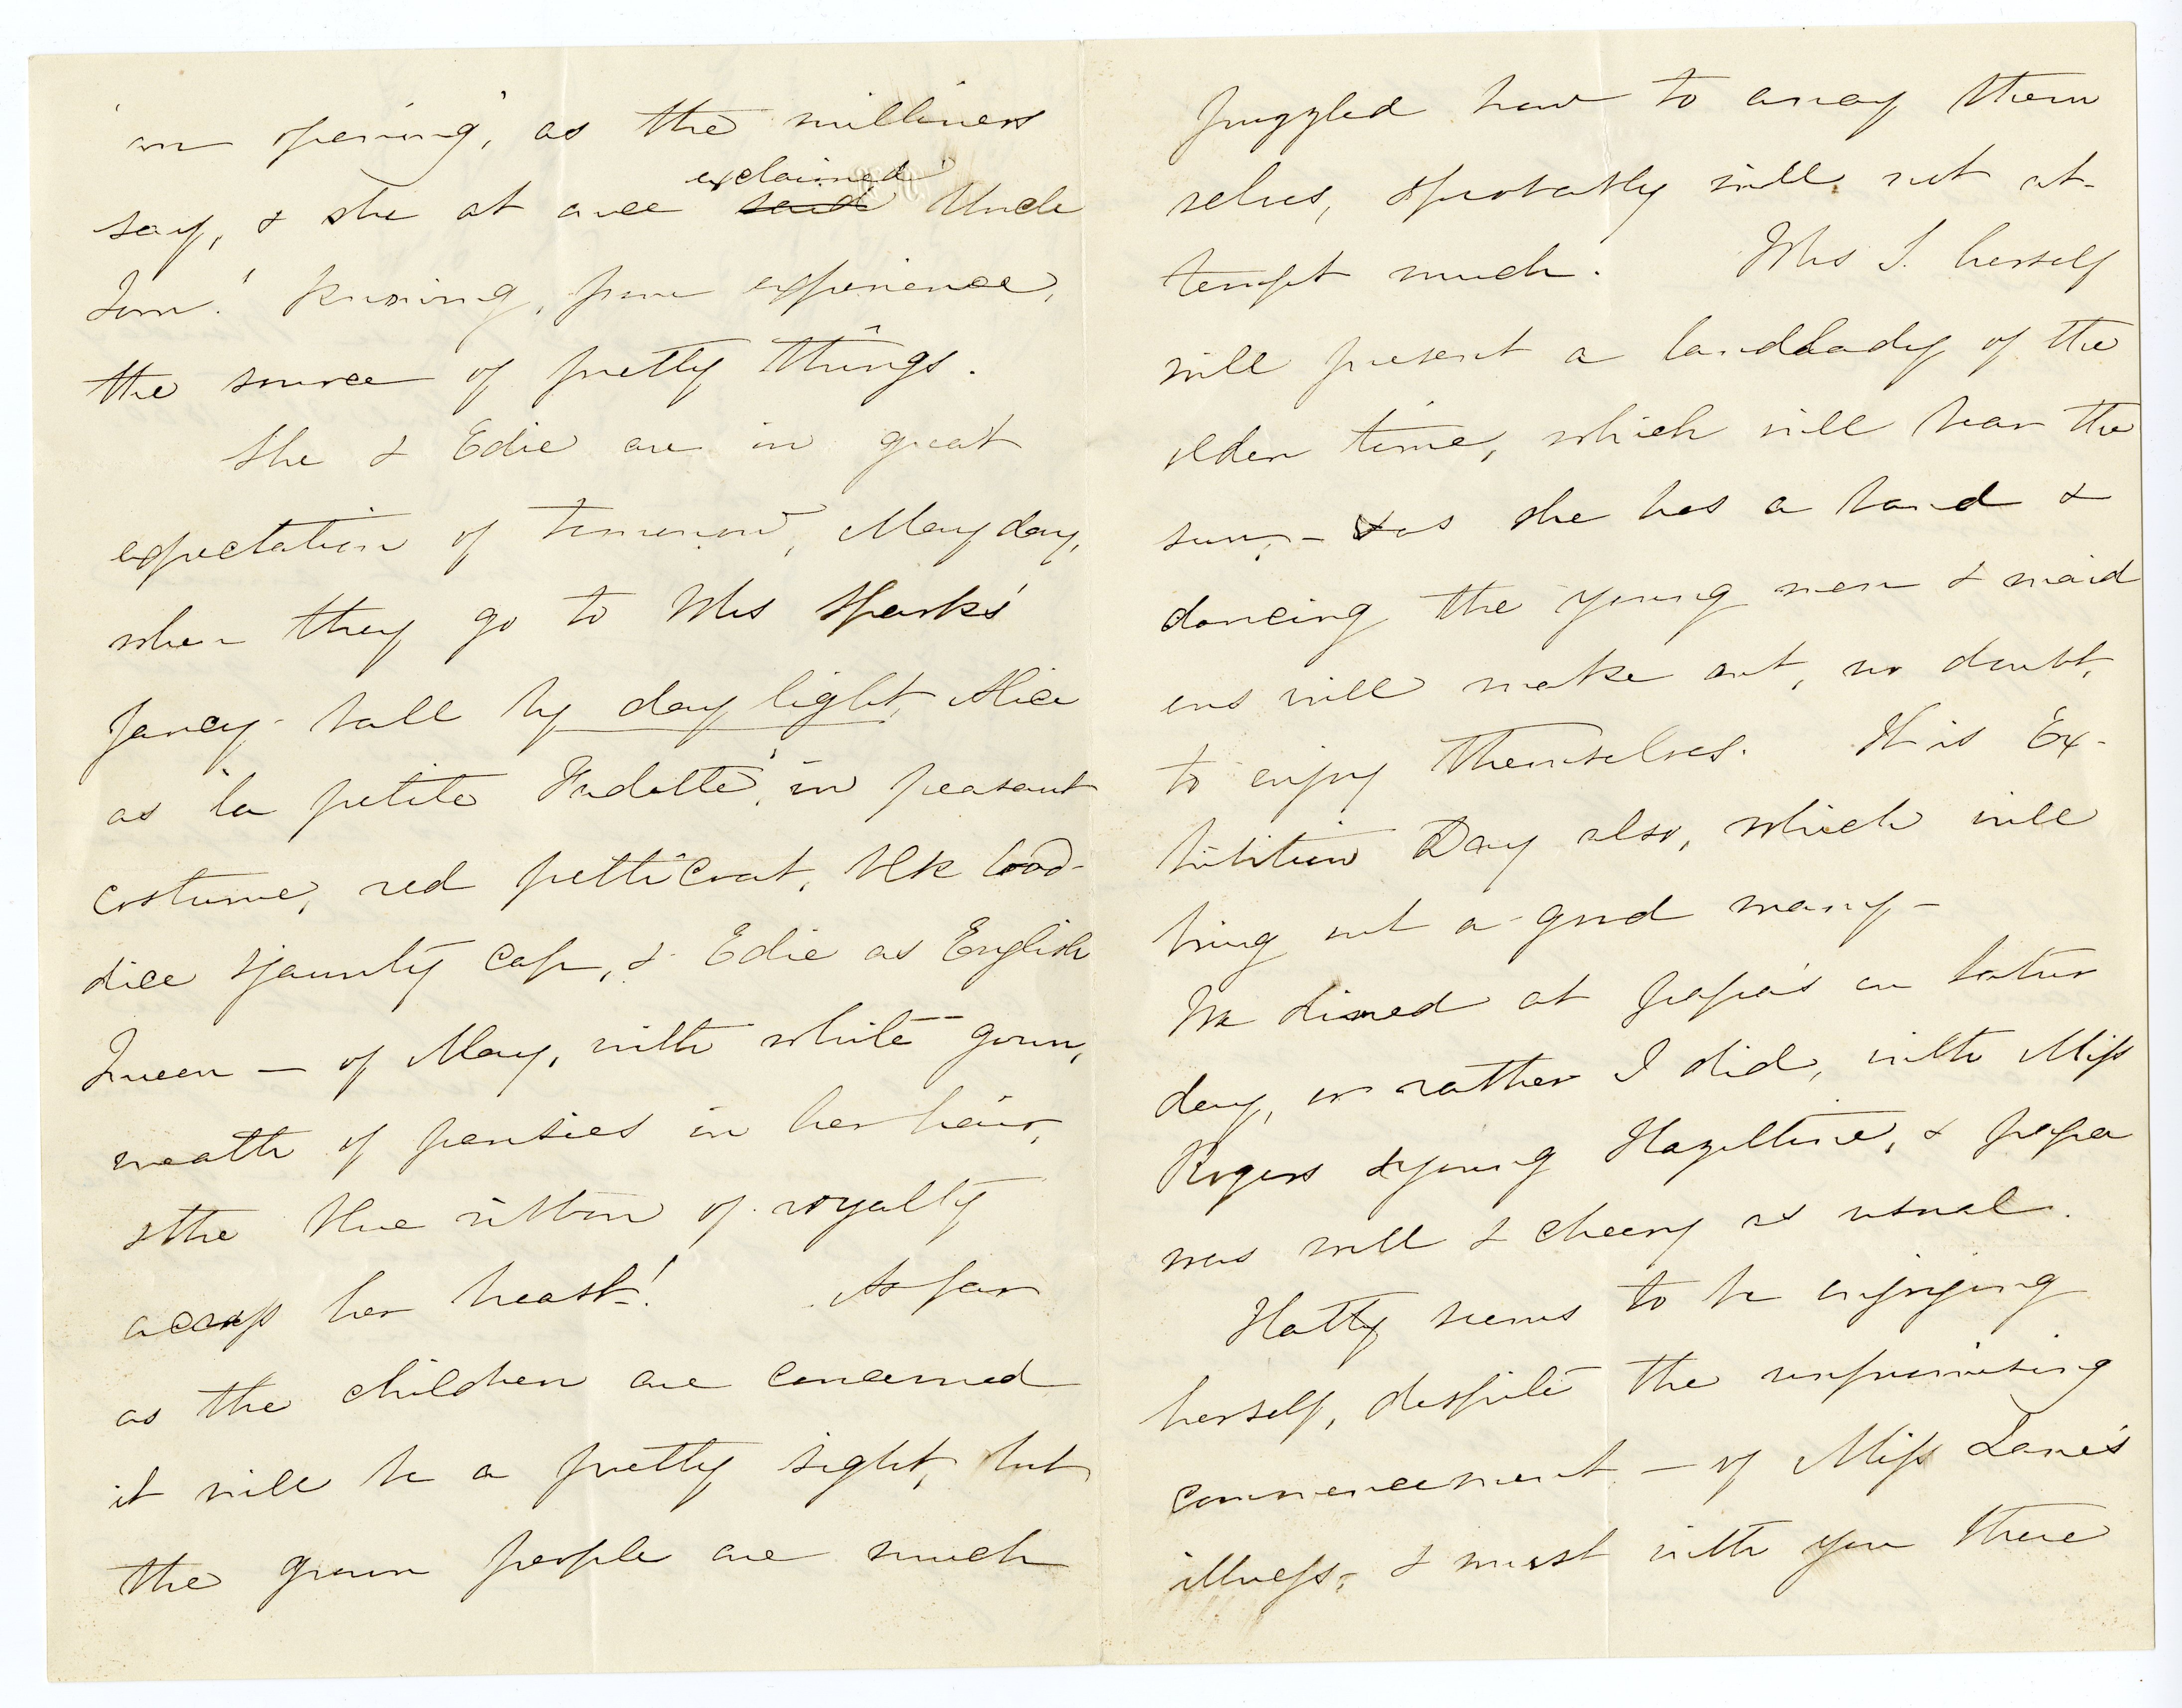 'an opening', as the milliners
say, & she at once exclaimed said Uncle
Tom! Knowing, from experience,
the source of pretty things.
She & Edie are in great
expectation of tomorrow, May day,
when they go to Mrs Sparks'
fancy-ball by day light, Alice
as 'la petite Fadette', in peasant
costume, red petticoat, blk bod-
dice & jaunty cap, & Edie as English
Queen — of May, with white gown,
wreath of pansies in her hair,
& the blue ribbon of royalty
across her breast! As far
as the children are concerned
it will be a pretty sight, but
the grown people are much
puzzled how to array them
selves, & probably will not at-
tempt much. Mrs S. herself
will present a landlady of the
olden time, which will bear the
sun, — & as she has a band &
dancing the young men & maid
ens will make out, no doubt,
to enjoy themselves. It is Ex-
hibition Day also, which will
bring out a good many —
We dined at papa's on Satur
day, or rather I did, with Miss
Rogers & young Hazeltine, & papa
was well & cheery as usual.
Hatty seems to be enjoying
herself, despite the unpromising
commencement — of Miss Lane's
illness, & must with you there